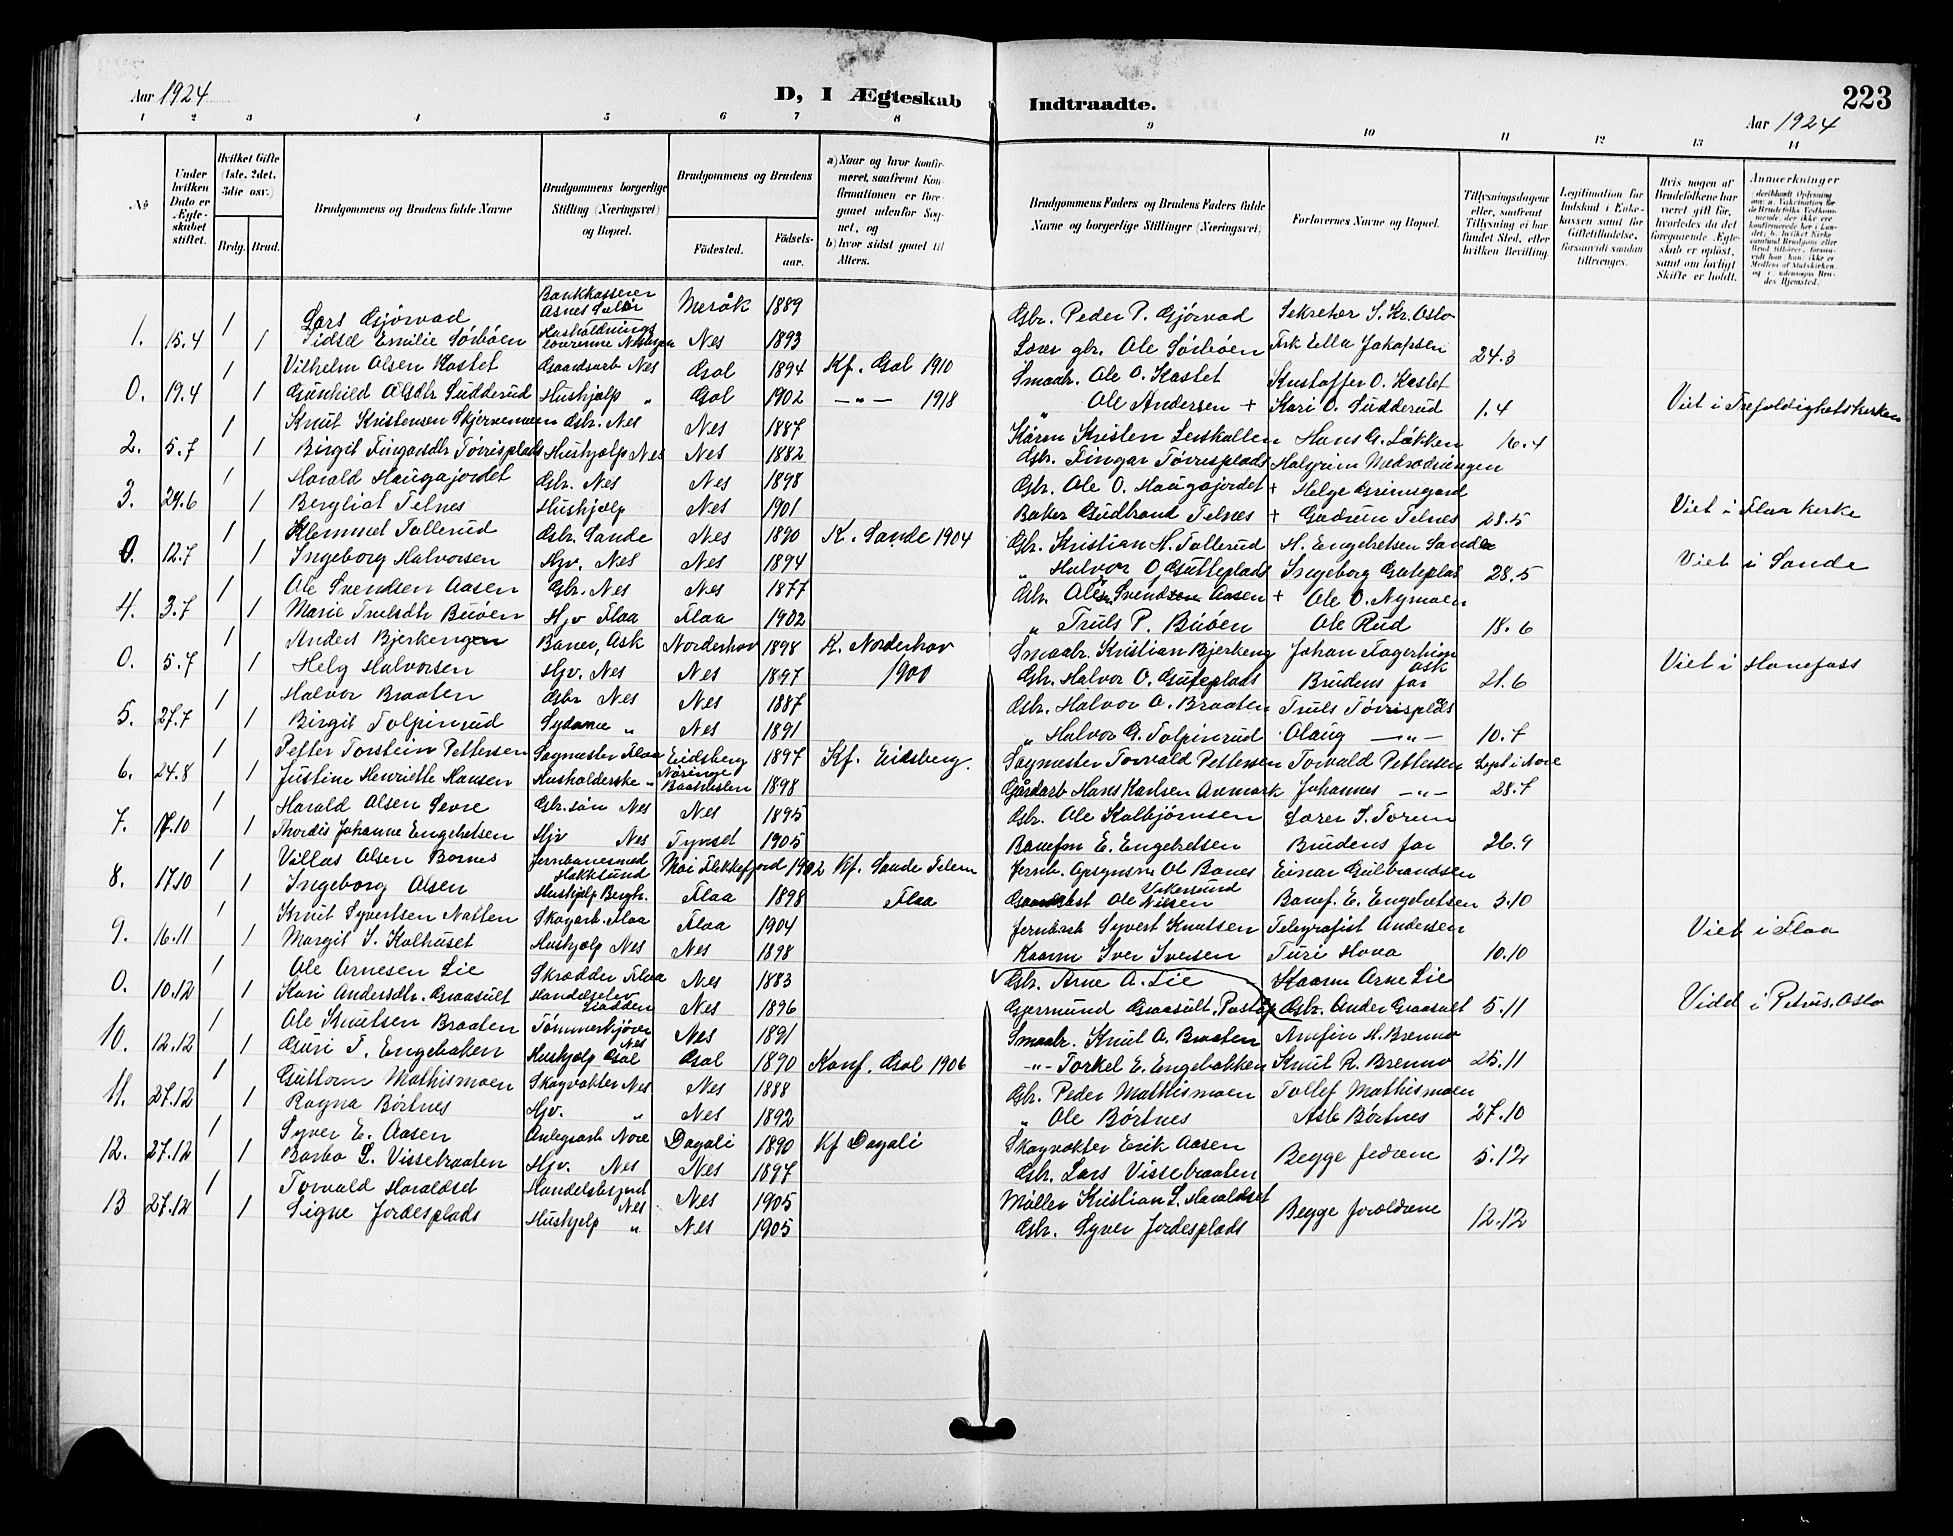 Aar 1924
D, I Ægteskab Indtraadte.
223
Aar 1924
1 2 3 4 5 6 7 8 9 10 11 12 13 14
No
Under hvilken Dato er Ægteskabet stiftet.
Hvilket Gifte (1ste, 2det, 3die osv.)
Brdg. Brud.
Brudgommens og Brudens fulde Navne
Brudgommens borgerlige Stilling (Næringsvei) og Bopæl.
Brudgommens og Brudens
Födested. Födselsaar.
a) Naar og hvor konfirmeret, saafremt Konfirmationen er foregaaet udenfor Sognet, og
b) hvor sidst gaaet til Alters.
Brudgommens Faders og Brudens Faders fulde Navne og borgerlige Stillinger (Næringsvei)
Forlovernes Navne og Bopæl.
Tillysningsdagene eller, saafremt Tillysning ei har fundet Sted, efter hvilken Bevilling.
Legitimation for Indskud i Enkekassen samt for Giftetilladelse, forsaavidt saadan tiltrænges.
Hvis nogen af Brudefolkene har været gift før, hvorledes da det foregaaende Ægteskab er opløst, samt om lovligt Skifte er holdt.
Anmærkninger
1 Lars Gjörvad Bankkasserer Asnes Solör Meråk 1889 Gbr. Peder P. Gjörvad Sekretær S. Kr. Oslo
1. 15.4 1 Sidsel Emilie Sörbøen Nes 1893 Ole Sörbøen Frk Ella Jakobsen 24.3
1 Vilhelm Olsen Kastet Gaardsarb Nes Gol 1894 Kf. Gol 1910 Smaabr. Ole O. Kastet Kristoffer O. Kastet
0. 19.4 1 Gunhild Olsdtr Sudderud Hushjælp " Gol 1902 —"— 1918 " Ole Andersen + Kari O. Sudderud 1.4 Viet i Trefoldighetskirken
1 Knut Kristensen Skjervemoen Gbr. Nes Nes 1887 Kristen Hans G. Løkken
2. 5.7 1 Birgit Fingarsdtr Tövrisplads Hushjælp Nes Nes 1882 Gbr. Fingar Tövrisplads Halgrim 16.4
1 Harald Haugajordet Gbr. Nes Nes 1898 Gbr. Ole O. Haugajordet + Helge Grimsgard
3. 29.6 1 Bergliot Telnes Hushjælp Nes 1901 Baker Gudbrand Telnes + Gudrun Telnes 28.5 Viet i Flaa kirke
1 Klemmet Tollerud Gbr. Sande Nes 1890 K. Sande 1904 Gbr. Kristian H. Tollerud H. Engebretsen Sande
0. 12.7 1 Ingeborg Halvorsen Hjv. Nes Nes 1894 " Halvor O. Gutteplads Ingeborg 28.5 Viet i Sande
1 Ole Svendsen Aasen Gbr. Nes Nes 1877 Gbr. Ole Svendsen Aasen + Ole O. Nymoen
4. 3.7 1 Marie Trulsdtr Buöen Hjv Flaa Flaa 1902 " Truls P. Buöen Ole Rud 18.6
1 Anders Bjerkengen Ask Norderhov 1898 K. Norderhov Smaabr. Kristian Bjerkeng Johan Fagerheim Ask
0. 5.7 1 Helg Halvorsen Hjv. Nes Nes 1897 1900 Gbr. Halvor O. Guteplads Brudens far 21.6 Viet i Hönefoss
1 Halvor Braaten Gbr Nes Nes 1887 Gbr. Halvor O. Braaten Truls Tövrisplads
5. 27.7 1 Birgit Tolpinrud Sydame " Nes 1891 " Halvor G. Tolpinrud Olaug —"— 10.7
1 Petter Torstein Pettersen Sagmester Flaa Eidsberg 1897 Kf. Eidsberg. Sagmester Torvald Pettersen Torvald Pettersen Lyst i Nore
6. 24.8 1 Justine Henriette Hansen Husholderske " 1898 Gårdarb Hans Karlsen Anmark Johannes —"— 28.7
1 Harald Olsen Sevre Gbr. sön Nes Nes 1895 Gbr. Ole Kolbjörnsen
7. 17.10 1 Thordis Johanne Engebretsen Hjv Nes Tynset 1905 Banefm E. Engebretsen Brudens far 26.9
1 Villas Olsen Bernes Jernbanesmed Hokksund Moi Flekkefjord 1902 Kf. Sande Telem Jernb. Ol Banes Einar Gulbrandsen
8. 17.10 1 Ingeborg Olsen Hushjælp Bergh. Flaa 1898 Flaa Ole Nilsen Vikersund Banef. E. Engebretsen 3.10
1 Knut Syvertsen Natten Skogarb. Flaa Flaa 1904 Jernbarb Syvert Knutsen Telegrafist Andersen
9. 16.11 1 Margit I. Kolhuset Hushjælp Nes Nes 1898 Kaarm Iver Iversen Turi Hova 10.10 Viet i Flaa
1 Ole Arnesen Lie Skrædder Flaa Nes 1883 Gbr. Arne A. Lie Kaarm Arne Lie
0. 10.12 1 Kari Andersdtr. Graasult Handelselev Liodden Nes 1896 Gjermund Graasult. Gbr. Ander Graasult 5.11 Vidd i Petrus. Oslo
1 Ole Knutsen Braaten Tömmerkjörer Nes Nes 1891 Smaabr. Knut O. Braaten Arnfin H. Brenno
10. 12.12 1 Guri T. Engebakken Hushjælp Gol Gol 1890 Konf. Gol 1906 —"— Torkel E. Engebakken Knut R. Brenno 25.11
1 Guttorm Mathismoen Skogvokter Nes Nes 1888 Gbr. Peder Mathismoen Tollef Mathismoen
11. 27.12 1 Ragna Börtnes Hjv. " Nes 1892 " Ole Börtnes Asle Börtnes 27.10
1 Syver E. Aasen Anlegsarb Nore Dagali 1890 Kf Dagali Skogvokter Erik Aasen Begge fedrene
12. 27.12 1 Barbo L. Vissebraaten Hjv. Nes Nes 1897 Gbr. Lars Vissebraaten 5.12
1 Torvald Haraldset Handelsbetjent Nes Nes 1905 Möller Kristian L. Haraldset Begge forældrene
13 27.12 1 Signe Jordesplads Hushjelp " Nes 1905 Gbr. Syver Jordesplads 12.12